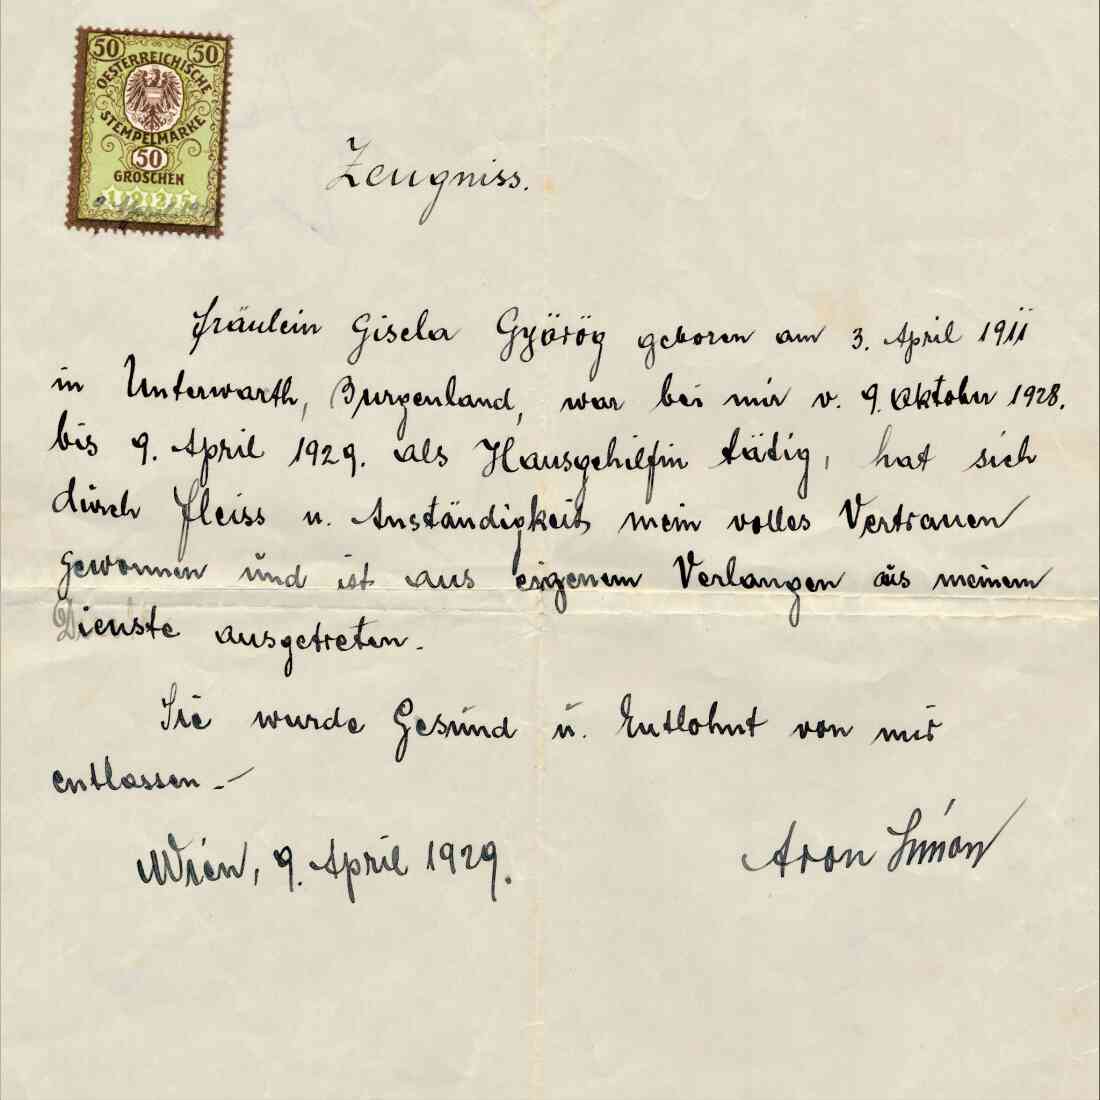 50 50
OESTERREICHISCHE
STEMPELMARKE
50
GROSCHEN
1925
Zeugniss.
Fräulein Gisela Györög geboren am 3. April 1911
in Unterwarth, Burgenland, war bei mir v. 9. Oktober 1928.
bis 9. April 1929. als Hausgehilfin tätig, hat sich
durch Fleiss u. Anständigkeit mein volles Vertrauen
gewonnen und ist aus eigenem Verlangen aus meinem
Dienste ausgetreten.
Sie wurde Gesund u. Entlohnt von mir
entlassen.—
Wien, 9. April 1929.
Aron Simon